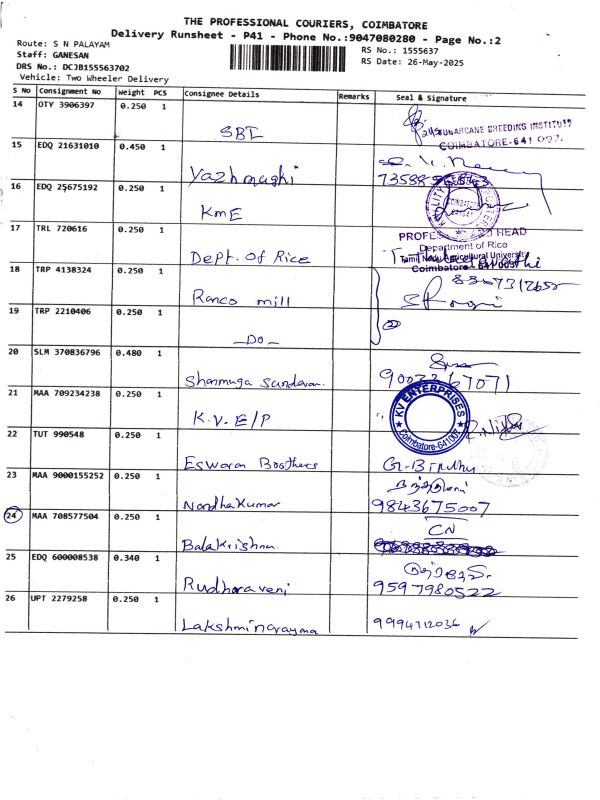 THE PROFESSIONAL COURIERS, COIMBATORE
Delivery Runsheet - P41 - Phone No.:9047080280 - Page No.:2
Route: S N PALAYAM
Staff: GANESAN
DRS No.: DCJB155563702
Vehicle: Two Wheeler Delivery
RS No.: 1555637
RS Date: 26-May-2025
S No Consignment No Weight PCS Consignee Details Remarks Seal & Signature
14 OTY 3906397 0.250 1
SBI
SUGARCANE BREEDING INSTITUTE
COIMBATORE-641 007.
15 EDQ 21631010 0.450 1
Yazhmozhi
16 EDQ 25675192 0.250 1
KME
COIMBATORE
641041
17 TRL 720616 0.250 1
Dept. of Rice
PROFESSOR AND HEAD
Department of Rice
Tamil Nadu Agricultural University
Coimbatore - 641 003
18 TRP 4138324 0.250 1
Ranco mill
8867312652
19 TRP 2210406 0.250 1
-Do-
②
20 SLM 370836796 0.480 1
Shanmuga Sundaram
9003267071
21 MAA 709234238 0.250 1
K.V. E/P
KV ENTERPRISES
Coimbatore-641007
22 TUT 990548 0.250 1
Eswaran Broothers
G-Bindhu
23 MAA 9000155252 0.250 1
Nandhakumar
9843675007
24 MAA 708577504 0.250 1
Balakrishna
CN
25 EDQ 600008538 0.340 1
Rudharaveni
9597980522
26 UPT 2279258 0.250 1
Lakshminarayana
9994712036